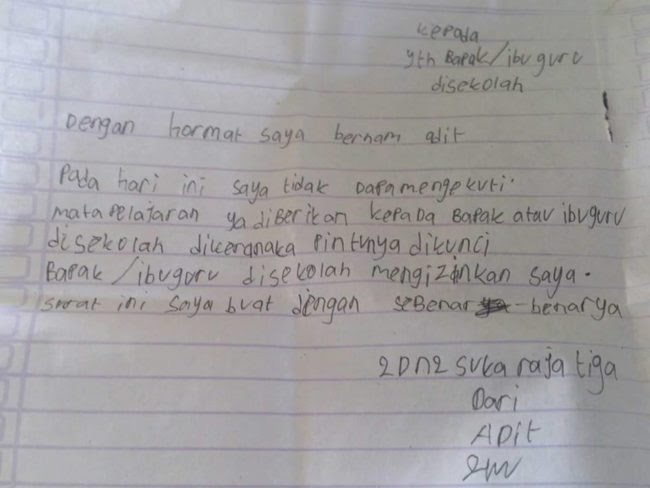 kepada
yth Bapak/ibu guru
disekolah
Dengan hormat saya bernam adit
Pada hari ini saya tidak Dapa mengekuti.
mata pelajaran ya diBerikan kepada Bapak atau ibuguru
disekolah dikeranaka Pintunya dikunci
Bapak/ibuguru disekolah mengizinkan saya.
surat ini saya buat dengan seBenar-benarya
2DN2 suka raja tiga
Dari
ADit